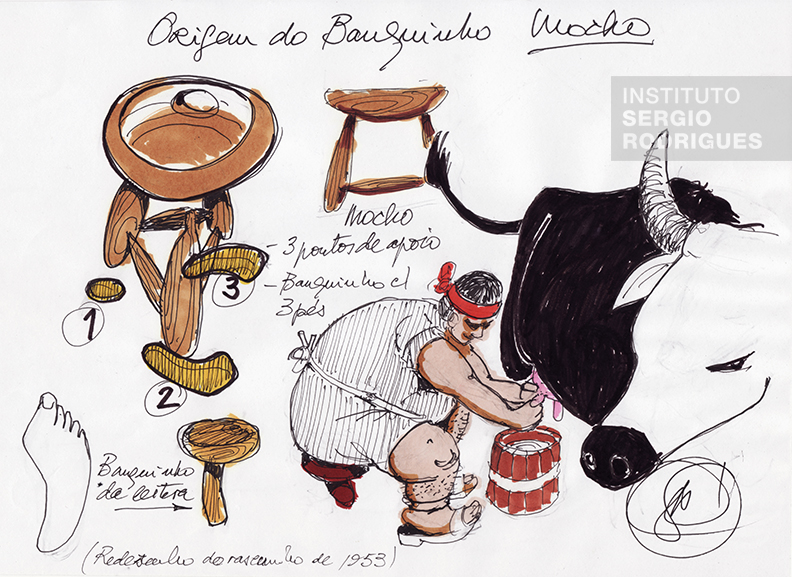 Origem do Banquinho Mocho
INSTITUTO
SERGIO
RODRIGUES
Mocho
- 3 pontos de apoio
- Banquinho c/
3 pés
1
2
3
Banquinho
da leitera
(Redesenho do rascunho de 1953)